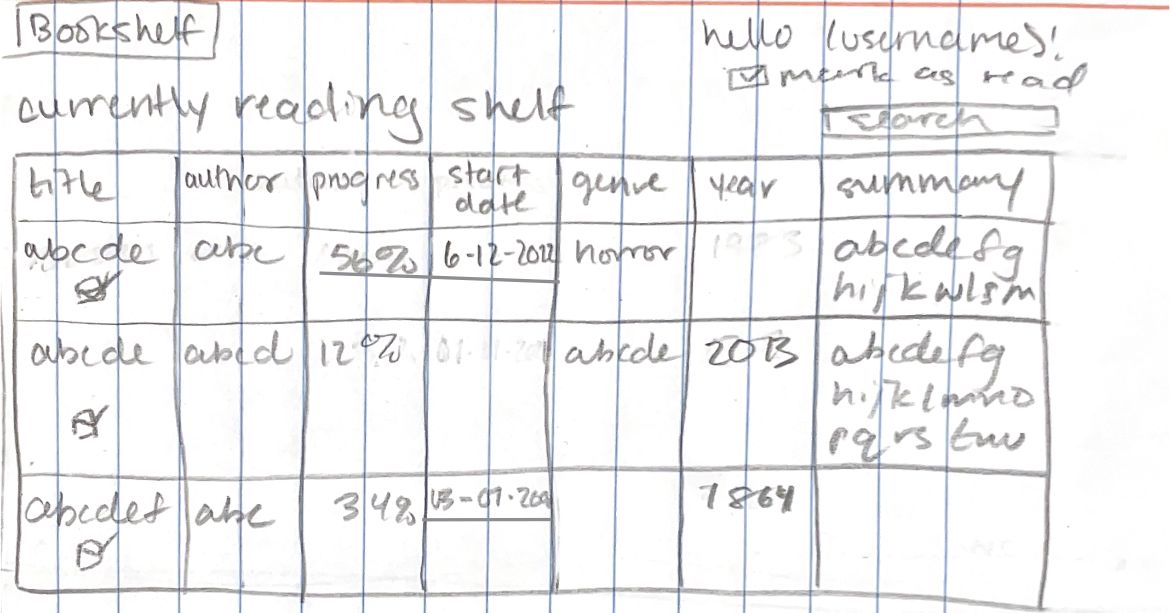 Bookshelf
hello (usernames)!
mark as read
currently reading shelf
search
title author progress start date genre year summary
abcde abc 56% 6-12-2022 horror 1923 abcdefg
hijkwlsm
abcde abcd 12% 01-11- abcde 2013 abcdefg
hijklmno
pqrs tuv
abcdef abc 34% 03-07-20 1864